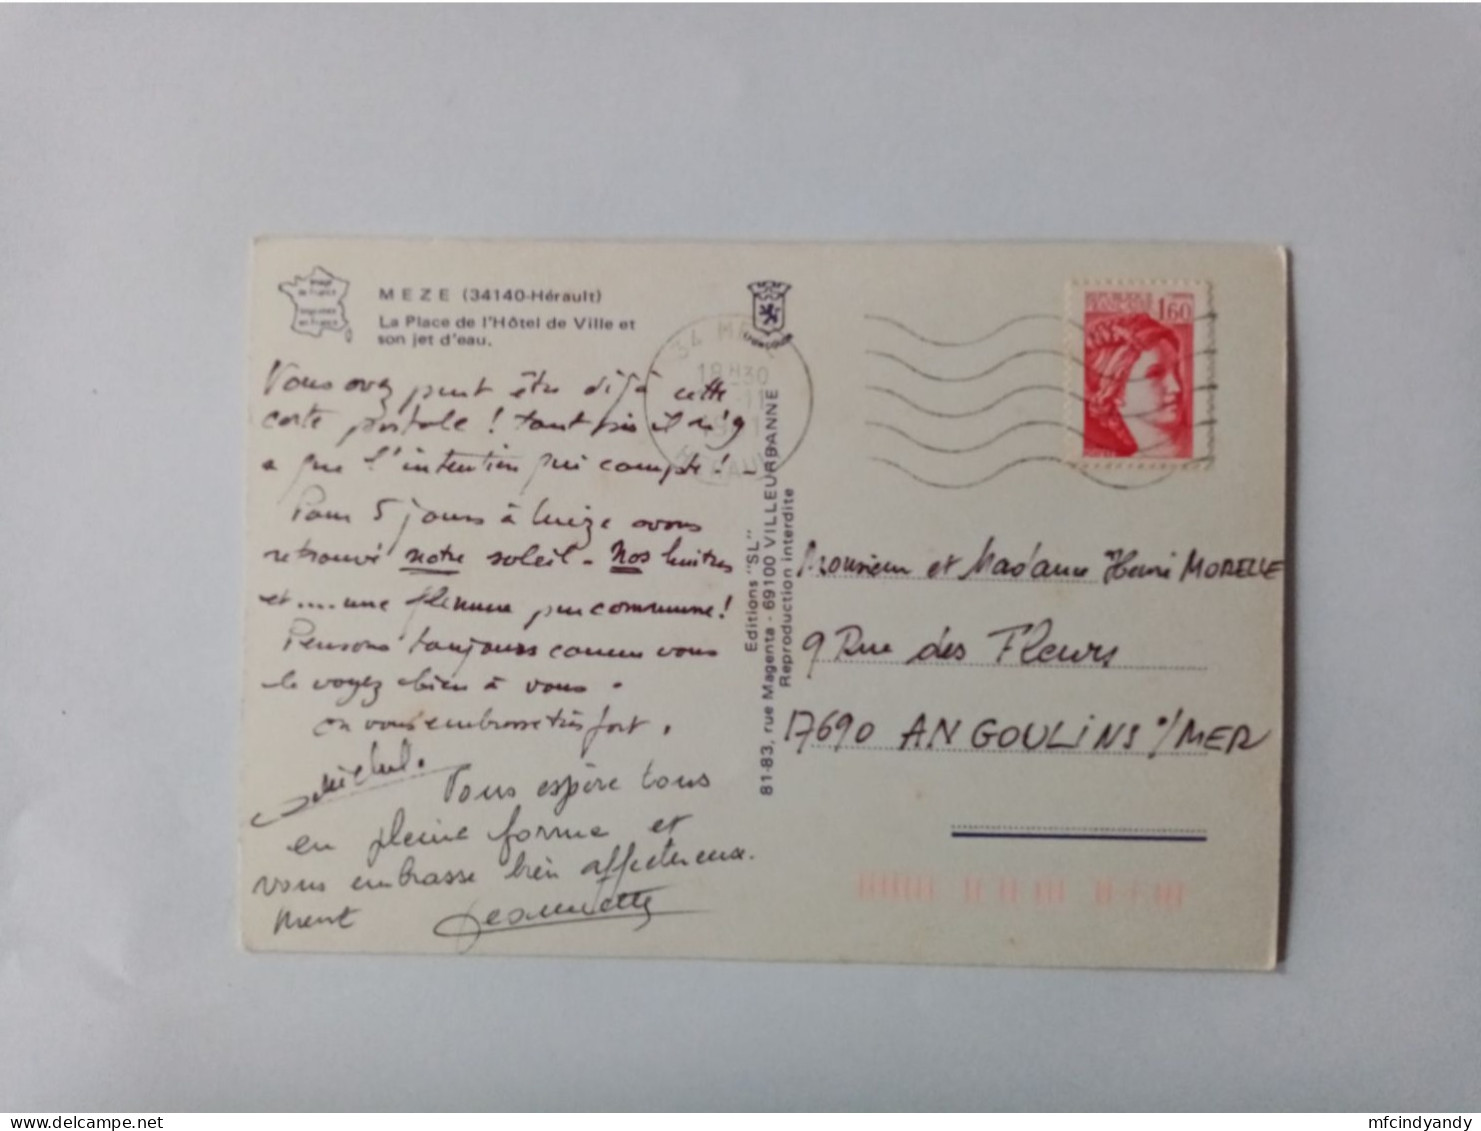 MEZE (34140-Hérault)
La Place de l'Hôtel de Ville et
son jet d'eau.
Vous avez peut être déjà cette
carte postale ! tant pis il n'y
a que l'intention qui compte ! -
Pour 5 jours à Mèze avons
retrouvé notre soleil - Nos huitres
et .... une flemme peu commune !
Pensons toujours comme vous
le voyez bien à vous .
on vous embrasse très fort .
Michel.
Vous espère tous
en pleine forme et
vous embrasse bien affectueuse-
ment
Jeannette
34 MEZE
18H30
HERAULT
Editions "SL"
81-83, rue Magenta - 69100 VILLEURBANNE
Reproduction interdite
REPUBLIQUE
FRANÇAISE
1,60
Monsieur et Madame Henri MORELLE
9 Rue des Fleurs
17690 ANGOULINS S/MER
mfcindyandy